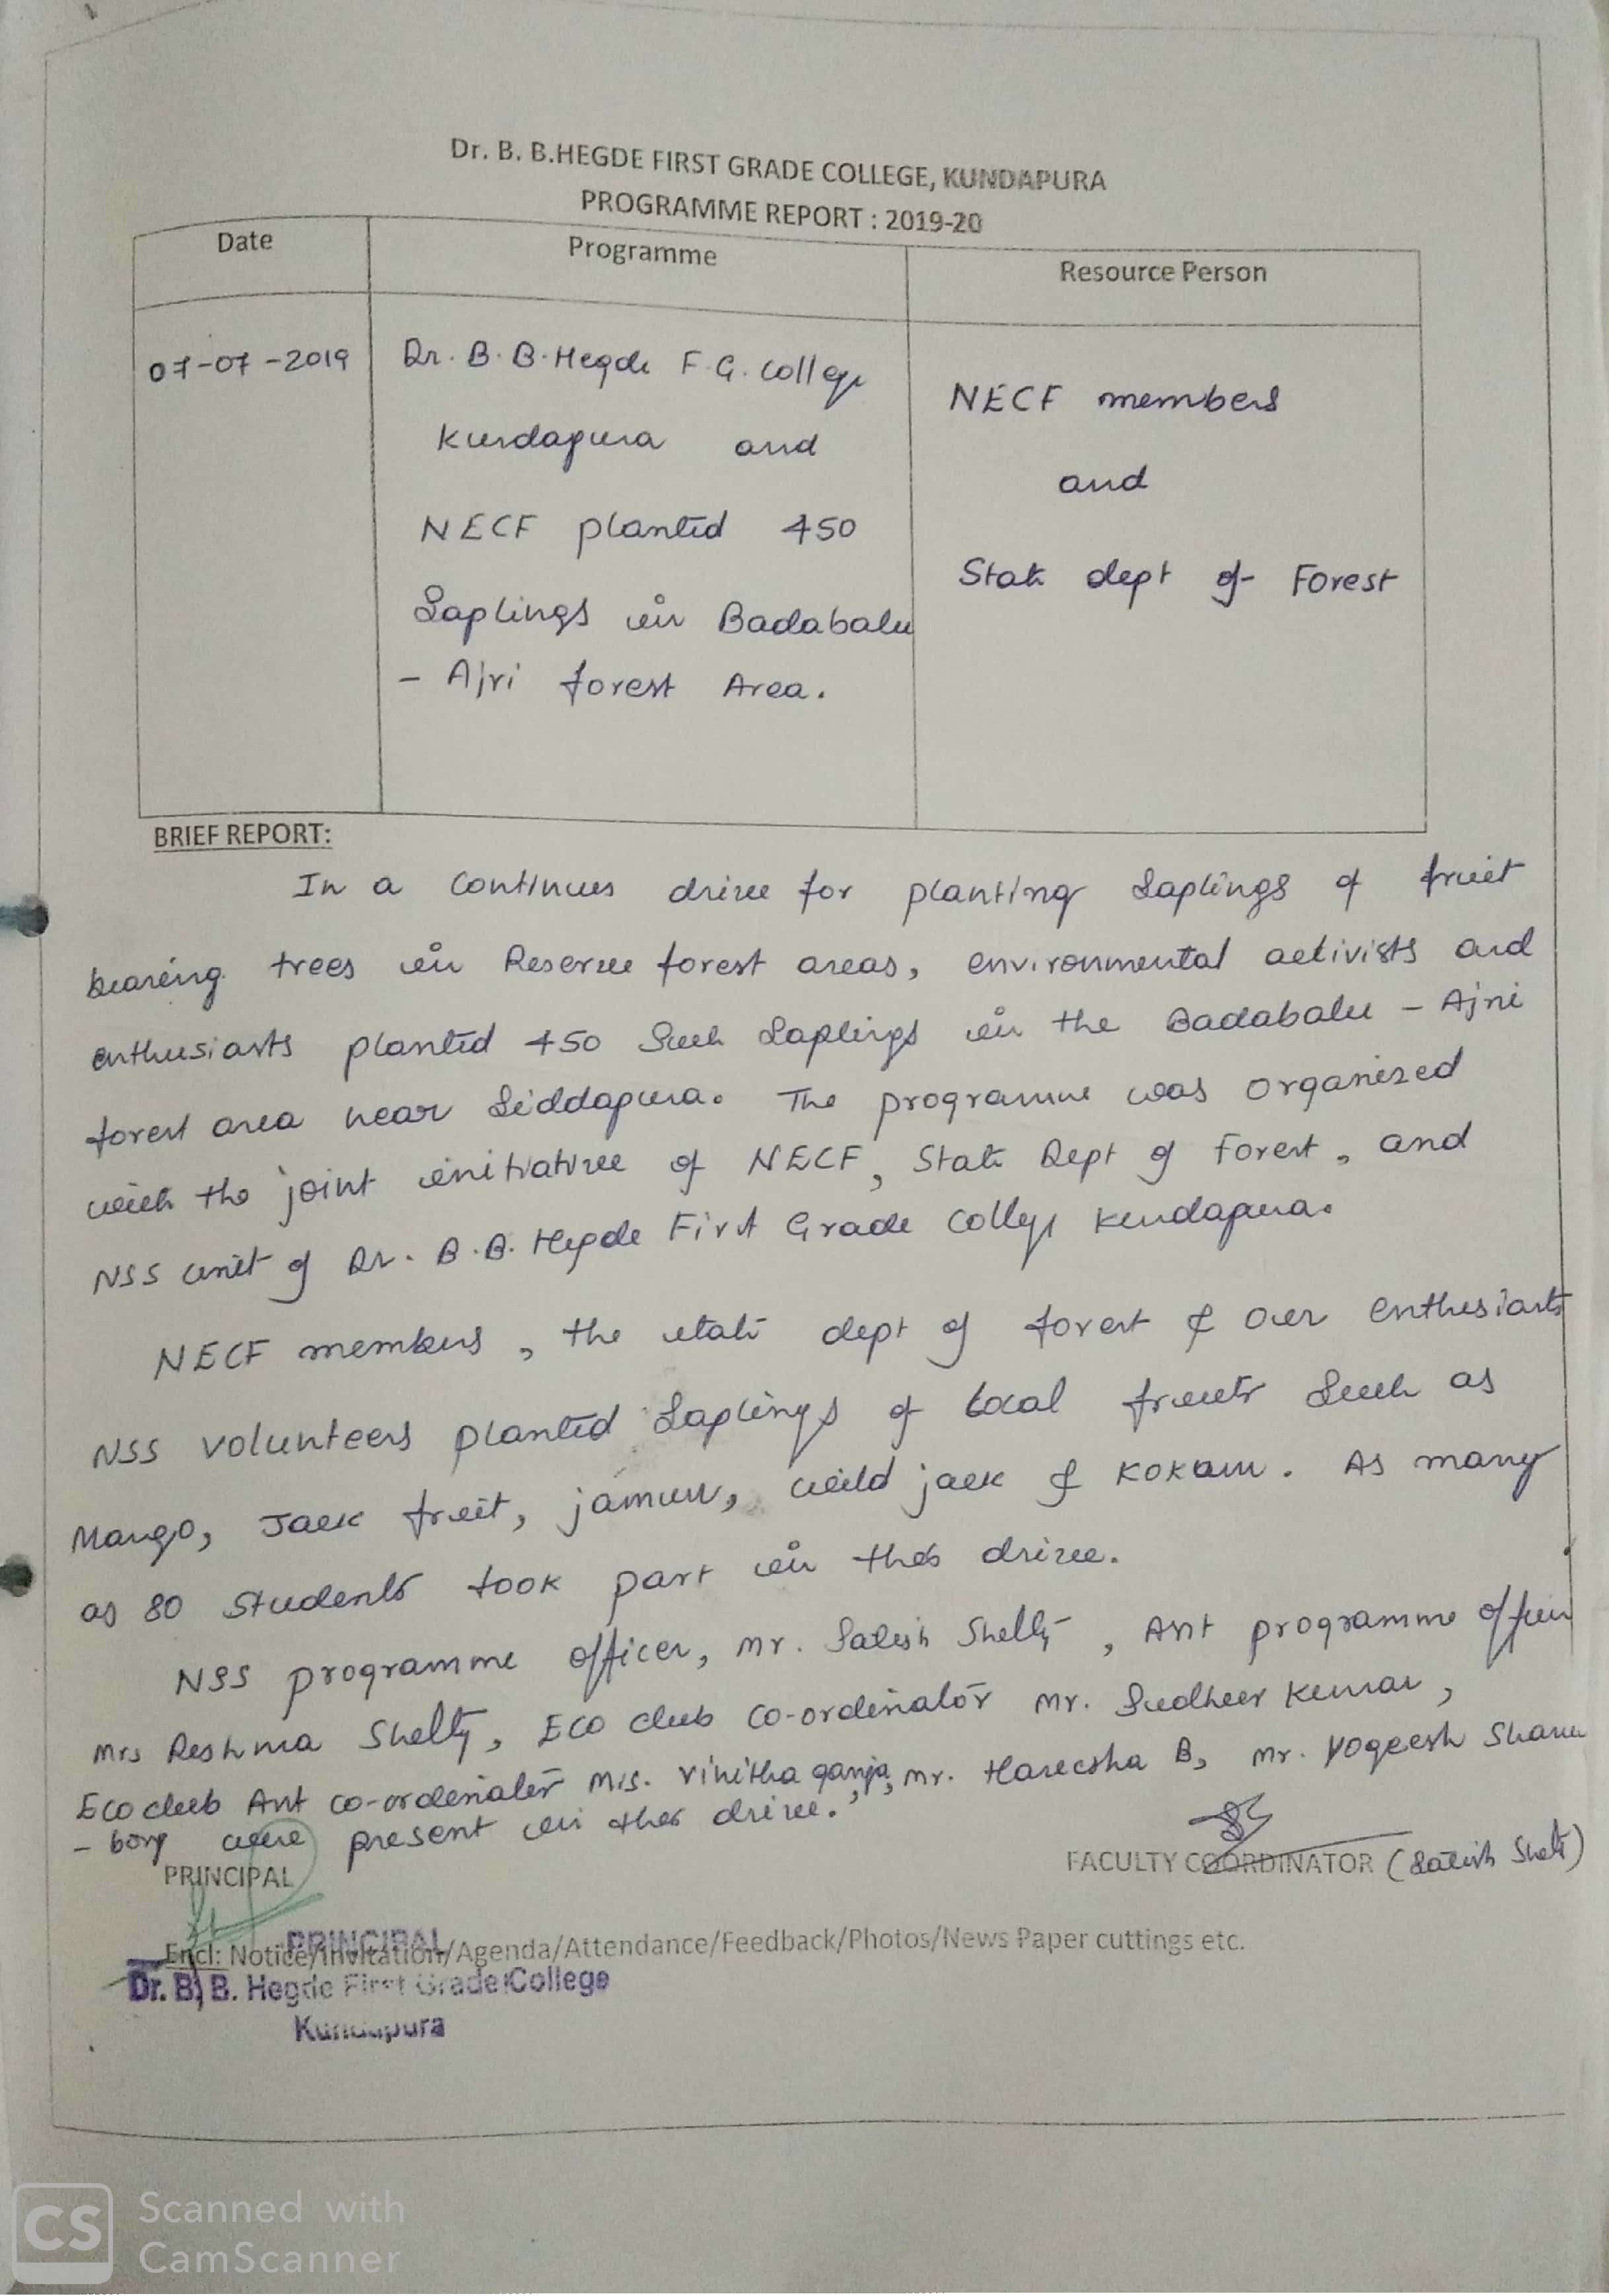 Dr. B. B.HEGDE FIRST GRADE COLLEGE, KUNDAPURA
PROGRAMME REPORT : 2019-20
Date Programme Resource Person
07-07-2019
Dr. B. B. Hegde F. G. College
Kundapura and
NECF planted 450
Saplings in Badabalu
- Ajri forest Area.
NECF members
and
State dept of Forest
BRIEF REPORT:
In a continues drive for planting Saplings of fruit
bearing trees in Reserve forest areas, environmental activists and
enthusiasts planted 450 Such Saplings in the Badabalu - Ajri
forest area near Siddapura. The programme was organized
with the joint initiative of NECF, State Dept of Forest, and
NSS unit of Dr. B.B. Hegde First Grade College Kundapura.
NECF members, the state dept of forest & our enthusiasts
NSS volunteers planted Saplings of local fruits Such as
Mango, Jack fruit, jamun, wild jack & Kokam. As many
as 80 Students took part in this drive.
NSS programme officer, Mr. Satish Shetty, Asst programme officer
Mrs Reshma Shetty, Eco club co-ordinator Mr. Sudheer Kumar,
Eco club Asst co-ordinator Mrs. Vinitha ganja, Mr. Hareesha B, Mr. Yogeesh Shanu
- bog were present in this drive.
PRINCIPAL
FACULTY COORDINATOR (Satish Shetty)
PRINCIPAL
Encl: Notice/Invitation/Agenda/Attendance/Feedback/Photos/News Paper cuttings etc.
Dr. B. B. Hegde First Grade College
Kundapura
CS Scanned with
CamScanner